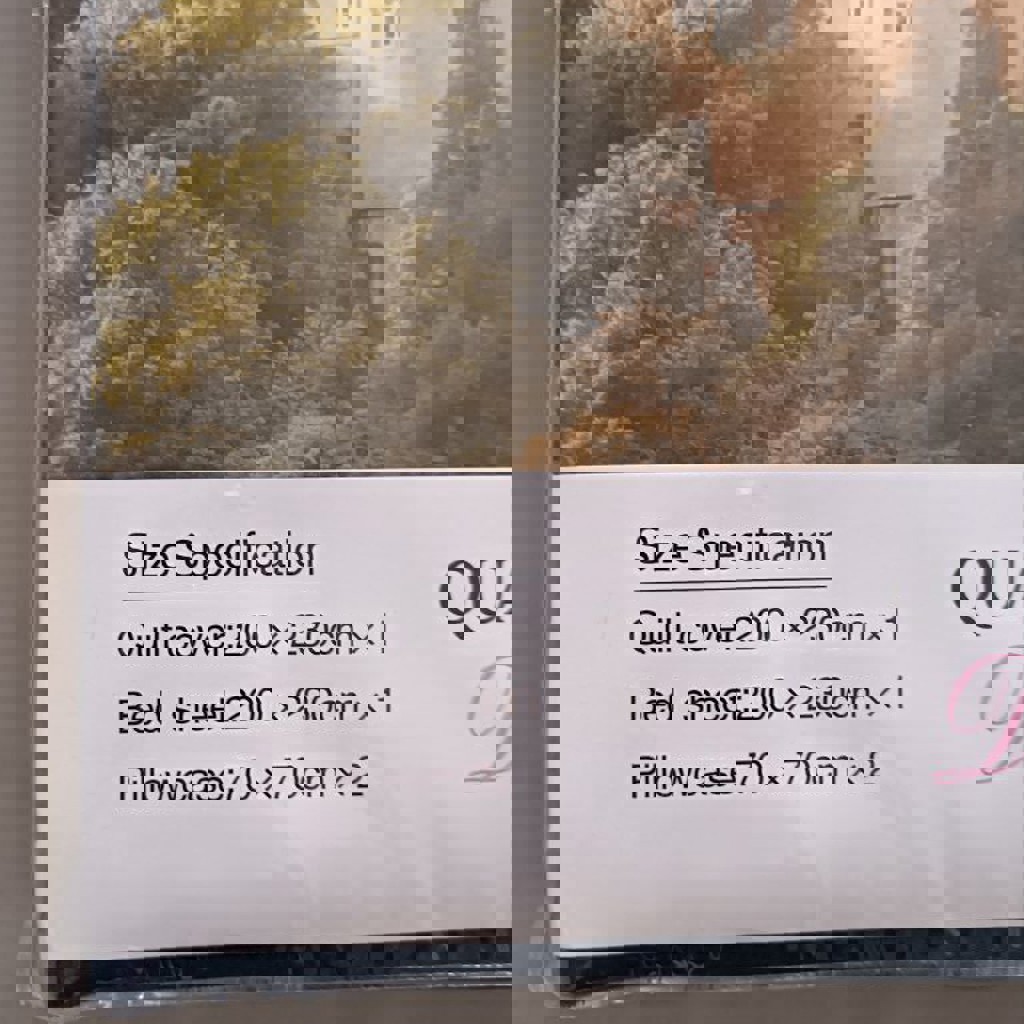 Size Specification
Quilt cover:200 × cm ×1
Bed sheet:200 × cm ×1
Pillowcase:70×70cm ×2
Size Specification
Quilt cover:200 × cm ×1
Bed sheet:200 × cm ×1
Pillowcase:70×70cm ×2